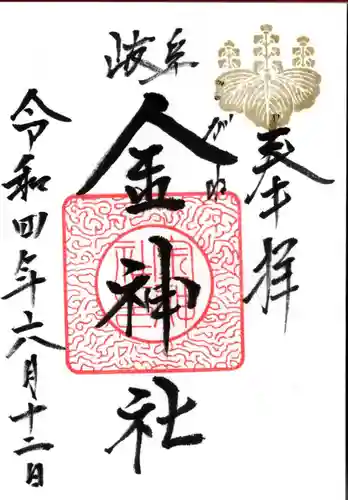 奉拝
岐阜
こがね
金神社
令和四年六月十二日